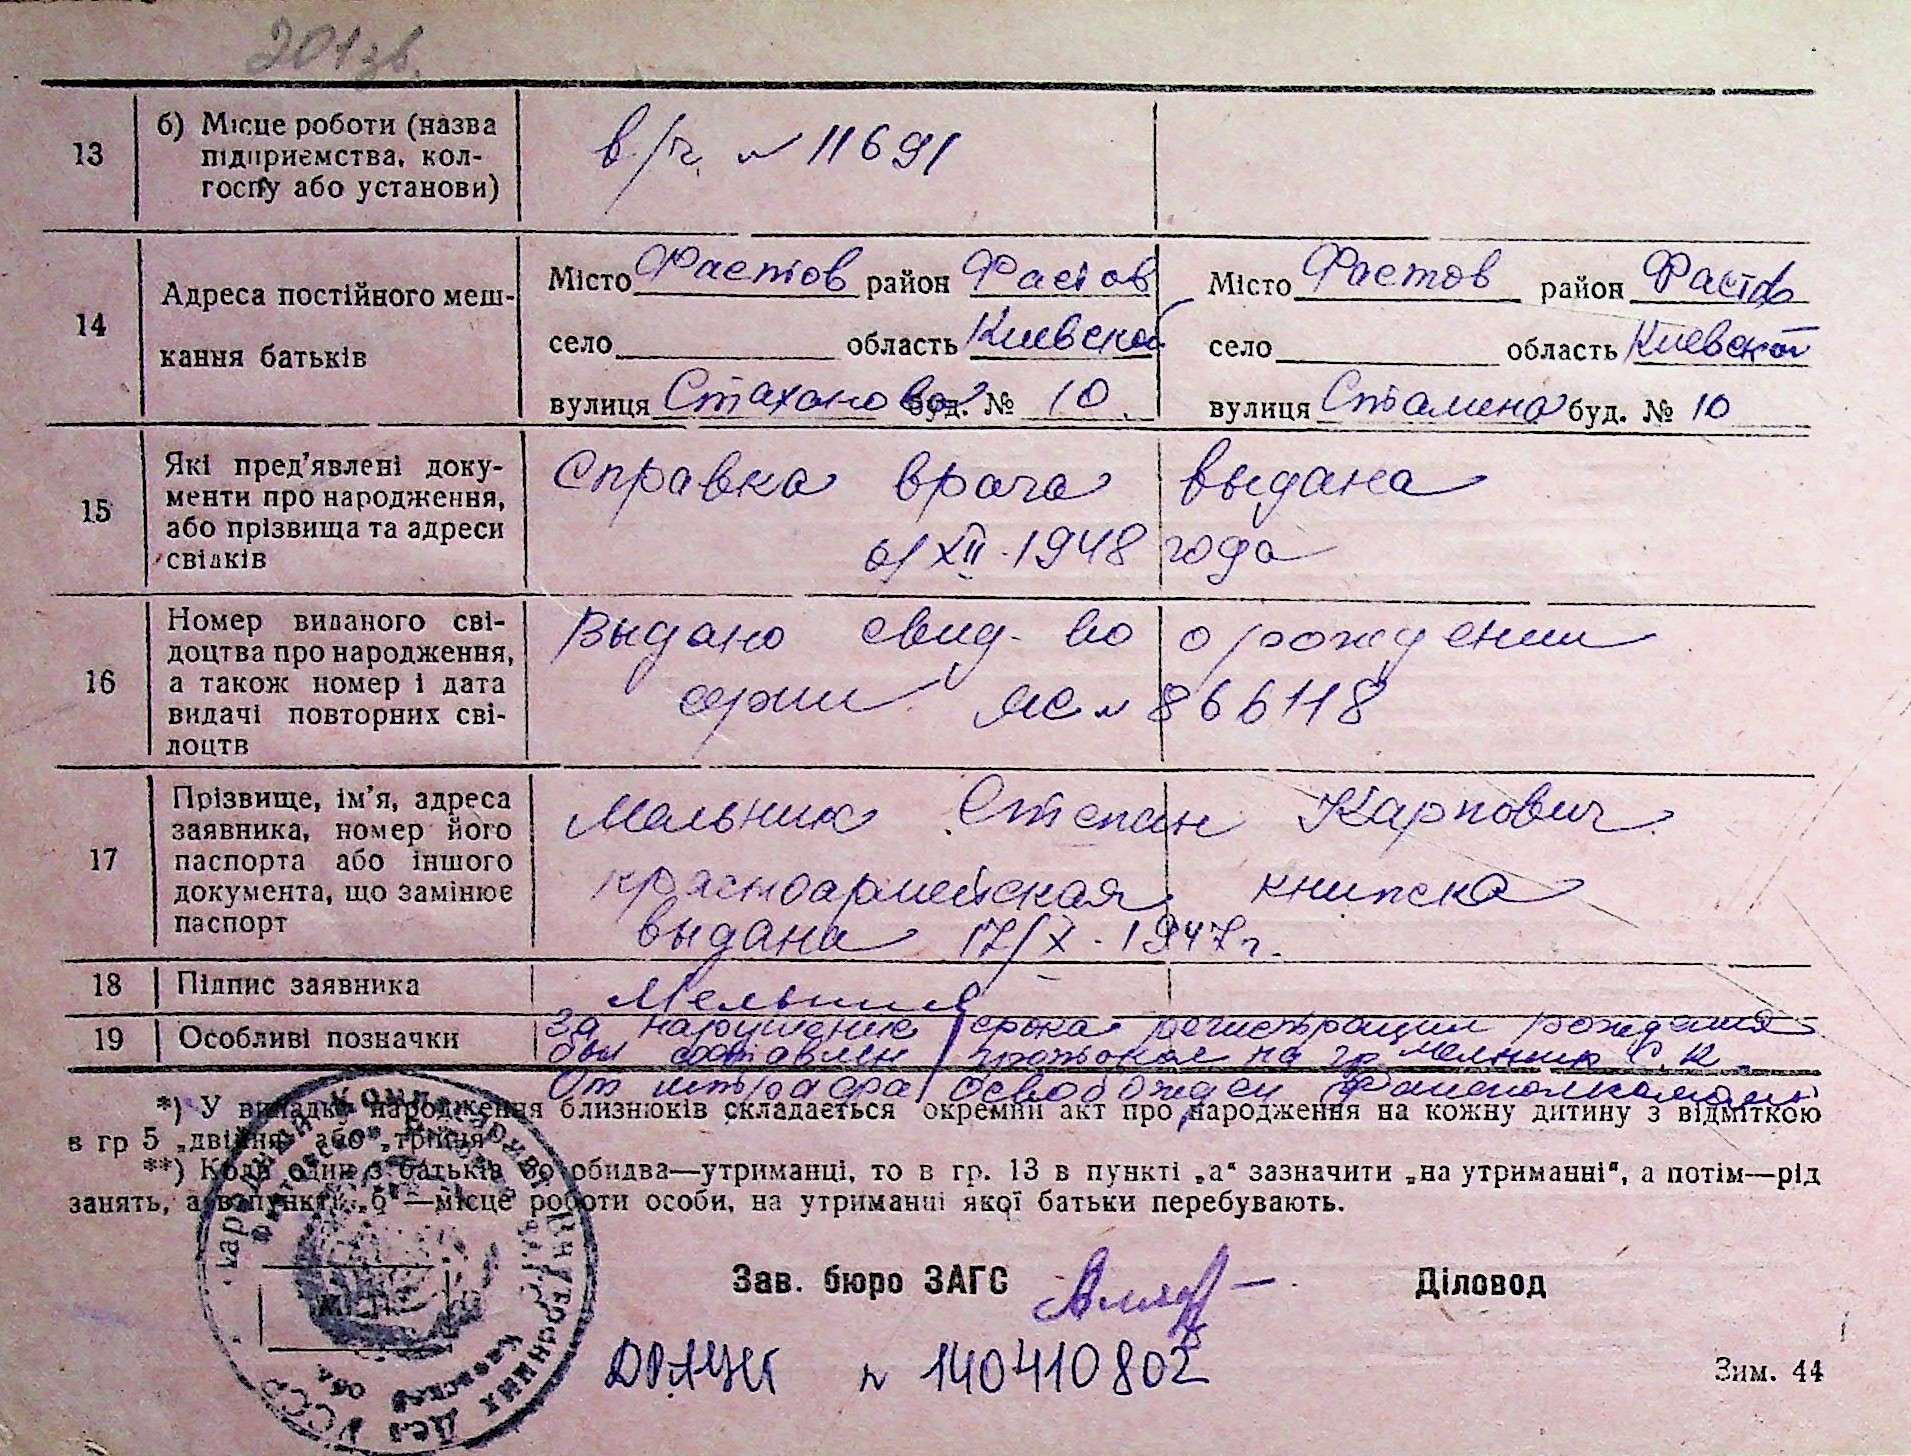 201 зв.
13
б) Місце роботи (назва
підприємства, кол-
госпу або установи)
в/ч. № 11691
14
Адреса постійного меш-
кання батьків
Місто Фастов район Фастов
село область Киевской
вулиця Стаханова буд. № 10.
Місто Фастов район Фастов
село область Киевской
вулиця буд. № 10
15
Які пред'явлені доку-
менти про народження,
або прізвища та адреси
свідків
Справка врача выдана
XII. 1948 года
16
Номер виданого сві-
доцтва про народження,
а також номер і дата
видачі повторних сві-
доцтв
Выдано свид-во о рождении
серии ЯС № 866118
17
Прізвище, ім'я, адреса
заявника, номер його
паспорта або іншого
документа, що замінює
паспорт
Мельник Степан Карпович
красноармейская книжка
выдана 17/X. 1947 г.
18
Підпис заявника
Мельник
19
Особливі позначки
За нарушение срока регистрации рождения
был составлен протокол на гр. Мельник С. К.
От штрафа освобожден
*) У випадку народження близнюків складається окремий акт про народження на кожну дитину з відміткою
в гр 5 „двійня" або „трійня"
**) Коли один з батьків бо обидва—утриманці, то в гр. 13 в пункті „а" зазначити „на утриманні", а потім—рід
занять, а в пункті „б"—місце роботи особи, на утриманні якої батьки перебувають.
Зав. бюро ЗАГС
Діловод
ДРАЦСГ № 140410802
Зим. 44
Внутренних Дел УССР
Киевской обл.